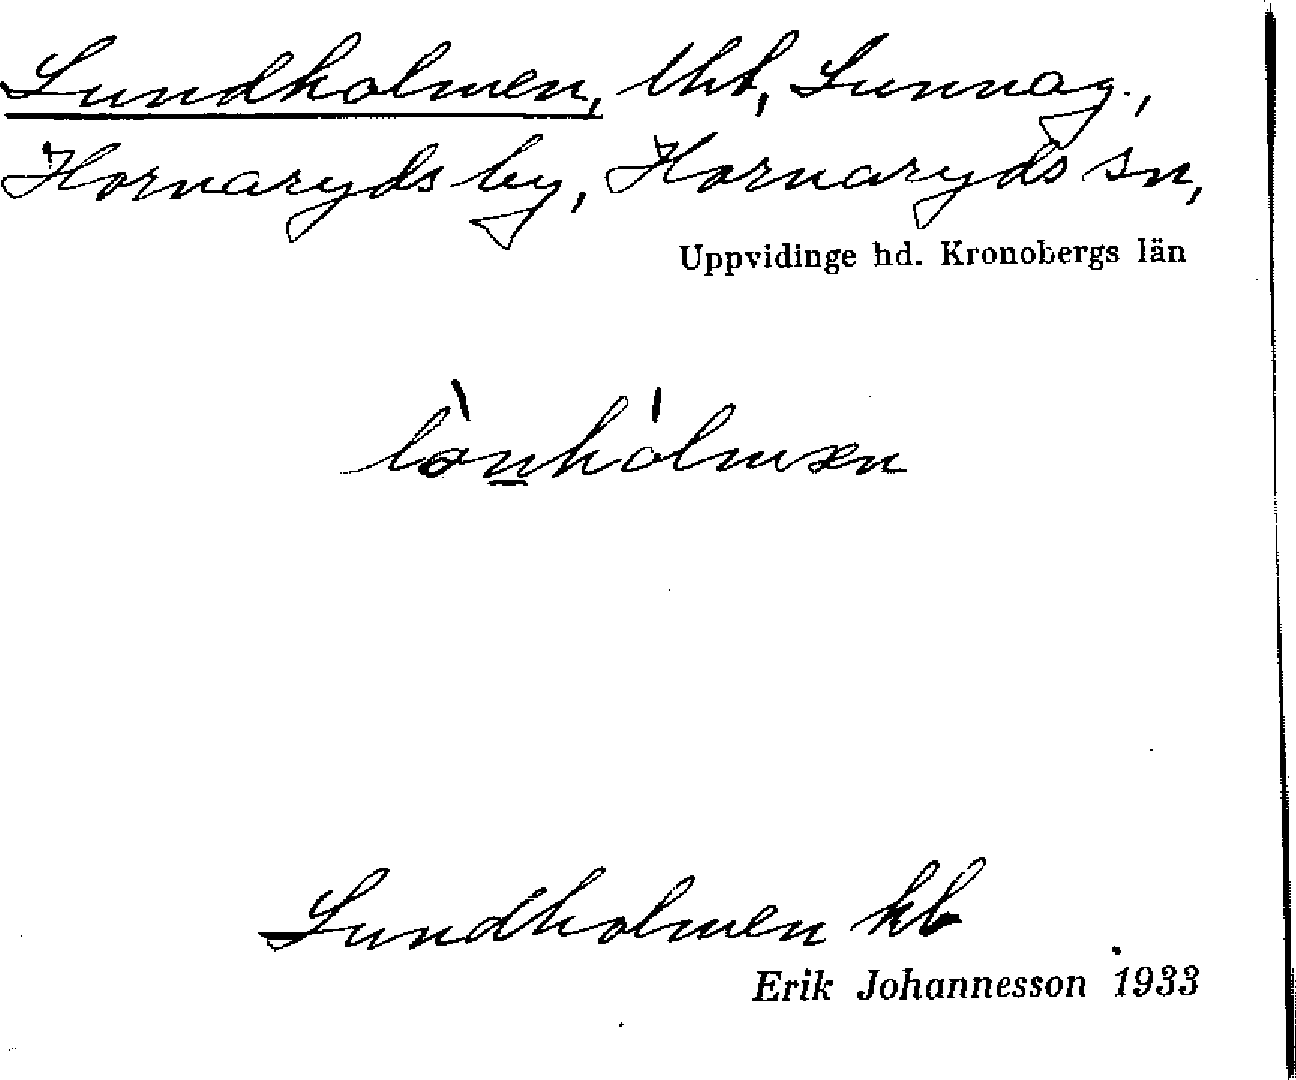 Lundholmen, tht, Sunnag.,
Hornaryds by, Hornaryds sn,
Uppvidinge hd. Kronobergs län
lònhólmæn
Lundholmen kb
Erik Johannesson 1933